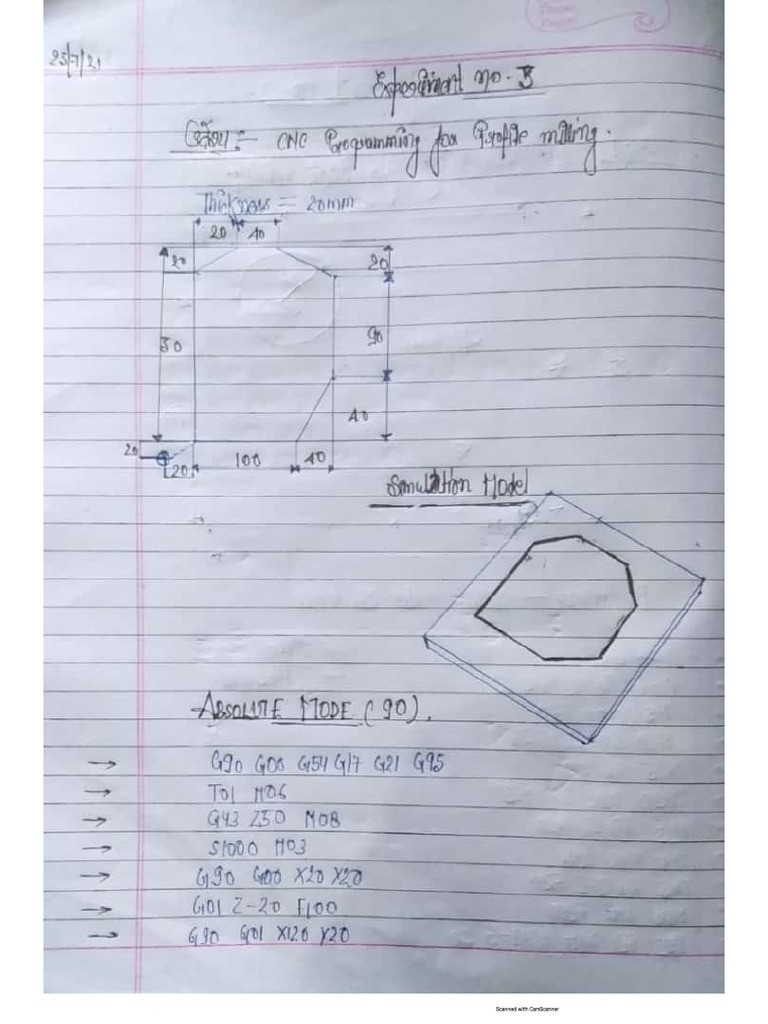 25/7/21
Experiment no. 3
उद्देश्य :- CNC Programming for Profile milling.
Thickness = 20mm
20 40
20 20
50 90
40
20 100 40
20
Simulation Model
ABSOLUTE MODE (90).
→ G90 G00 G54 G17 G21 G95
→ T01 M06
→ G43 Z50 M08
→ S1000 M03
→ G90 G00 X20 X20
→ G01 Z-20 F100
→ G90 G01 X120 Y20
Scanned with CamScanner